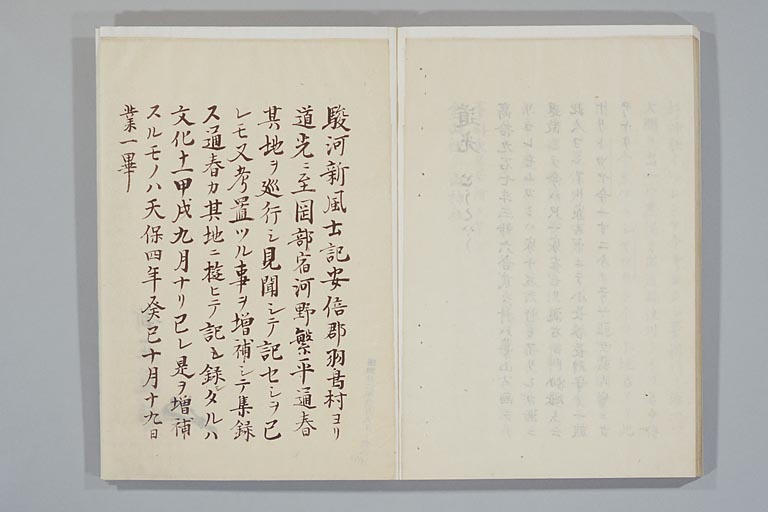 駿河新風土記安倍郡羽鳥村ヨリ
道光ニ至岡部宿河野繁平通春
其地ヲ巡行シ見聞シテ記セシヲ已
レモ又考置ツル事ヲ増補シテ集録
ス通春カ其地ニ遊ヒテ記シ録シタルハ
文化十一甲戌九月ナリ已レ是ヲ増補
スルモノハ天保四年癸巳十月十九日
業一畢